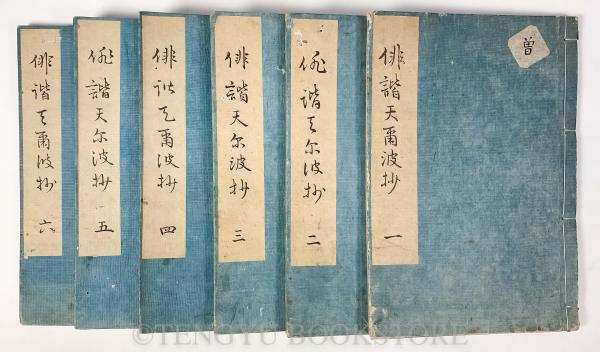 曽
俳諧天爾波抄 一
俳諧天尓波抄 二
俳諧天尓波抄 三
俳諧天爾波抄 四
俳諧天尓波抄 五
俳諧天爾波抄 六
©TENGYU BOOKSTORE